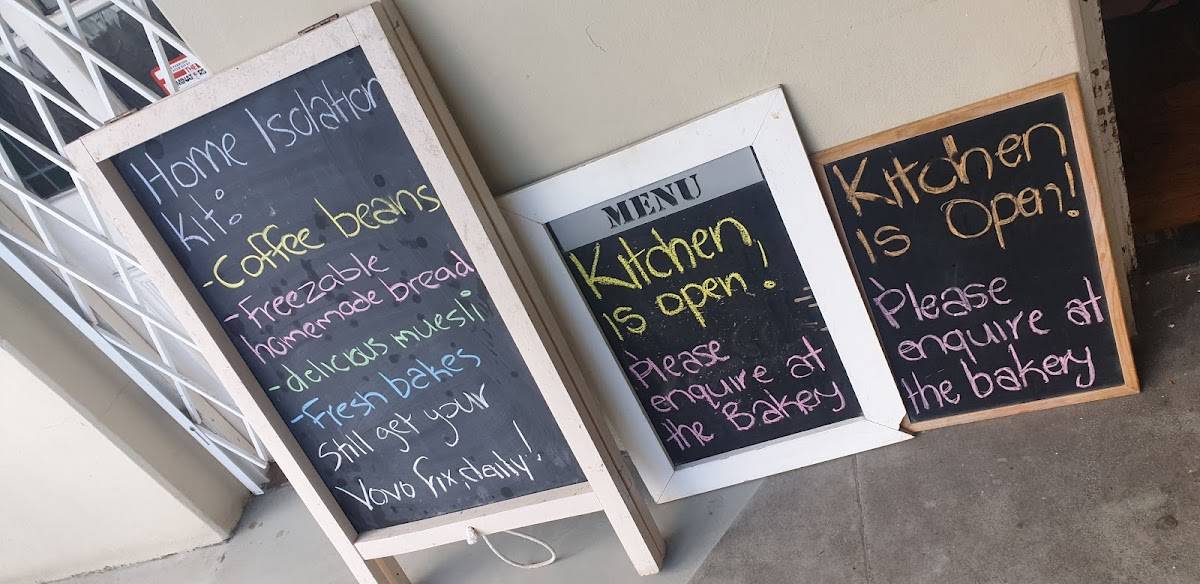 Home Isolation
Kit:
- Coffee beans
- Freezable
homemade bread
- delicious muesli
- Fresh bakes
Still get your
Vovo fix, daily!
MENU
Kitchen
is open!
Please
enquire at
the Bakery
Kitchen
is Open!
Please
enquire at
the bakery